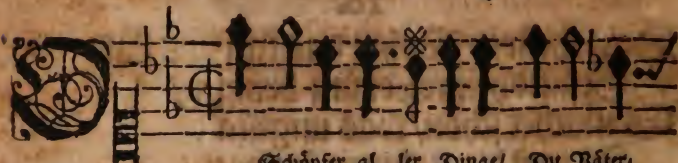 O Schöpfer al⸗ ler Dinge/ Du Väter⸗